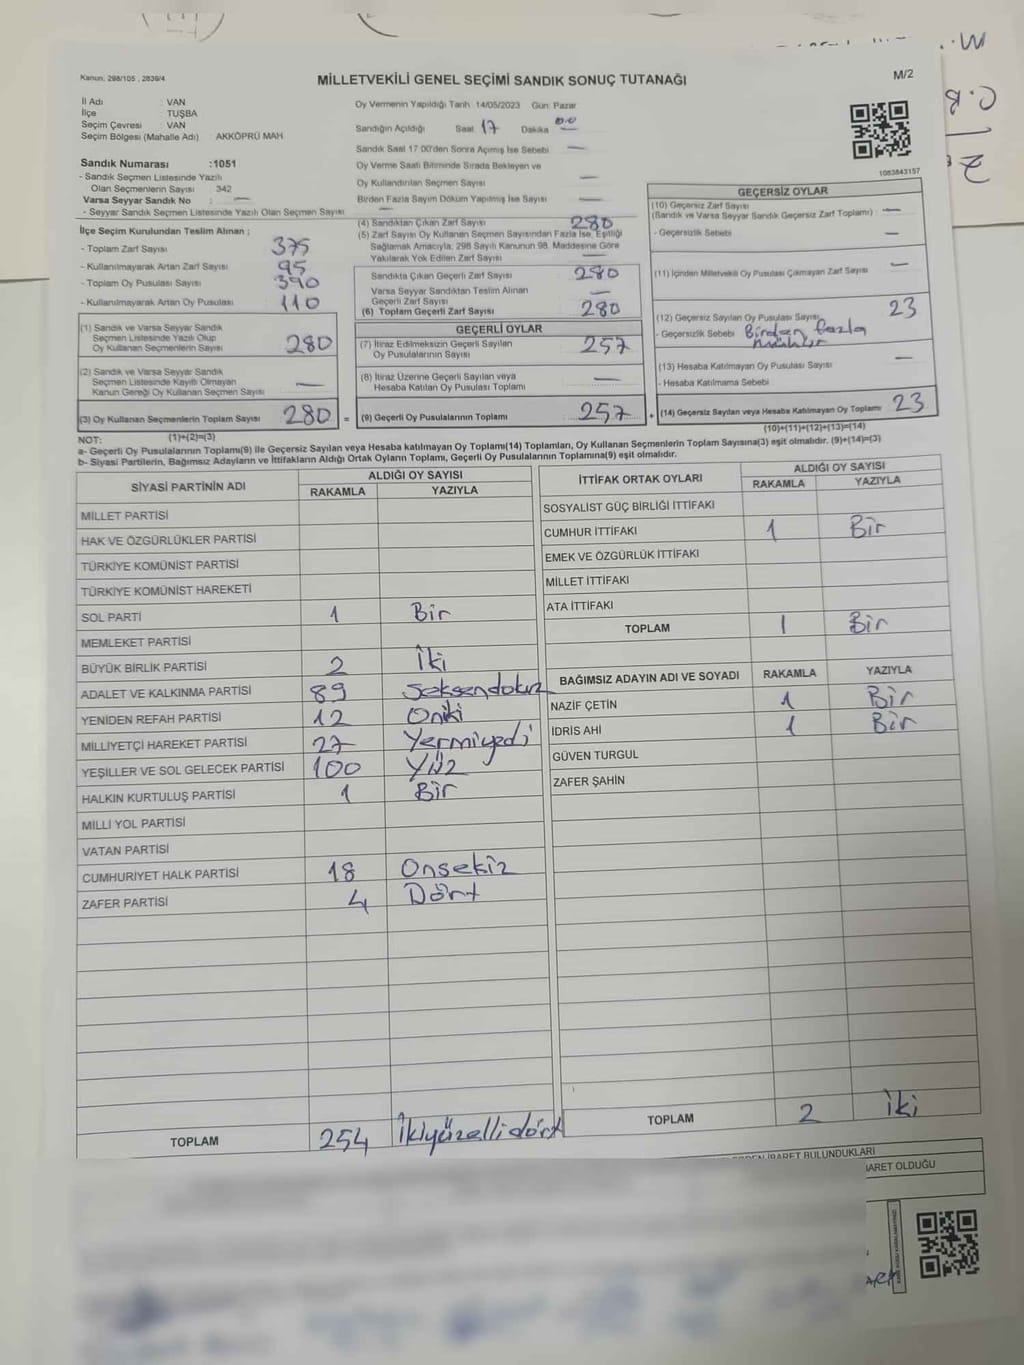 Kanun: 298/105 , 2839/4
MİLLETVEKİLİ GENEL SEÇİMİ SANDIK SONUÇ TUTANAĞI
M/2
İl Adı : VAN
İlçe : TUŞBA
Seçim Çevresi : VAN
Seçim Bölgesi (Mahalle Adı) : AKKÖPRÜ MAH
Sandık Numarası :1051
- Sandık Seçmen Listesinde Yazılı
Olan Seçmenlerin Sayısı 342
Varsa Seyyar Sandık No : —
- Seyyar Sandık Seçmen Listesinde Yazılı Olan Seçmen Sayısı
İlçe Seçim Kurulundan Teslim Alınan ;
- Toplam Zarf Sayısı 375
- Kullanılmayarak Artan Zarf Sayısı 95
- Toplam Oy Pusulası Sayısı 390
- Kullanılmayarak Artan Oy Pusulası 110
(1) Sandık ve Varsa Seyyar Sandık
Seçmen Listesinde Yazılı Olup
Oy Kullanan Seçmenlerin Sayısı 280
(2) Sandık ve Varsa Seyyar Sandık
Seçmen Listesinde Kayıtlı Olmayan
Kanun Gereği Oy Kullanan Seçmen Sayısı —
(3) Oy Kullanan Seçmenlerin Toplam Sayısı 280 =
Oy Vermenin Yapıldığı Tarih 14/05/2023 Gün: Pazar
Sandığın Açıldığı Saat 17 Dakika 00
Sandık Saat 17 00'den Sonra Açımış İse Sebebi —
Oy Verme Saati Bitiminde Sırada Bekleyen ve
Oy Kullandırılan Seçmen Sayısı —
Birden Fazla Sayım Döküm Yapılmış İse Sayısı —
(4) Sandıktan Çıkan Zarf Sayısı 280
(5) Zarf Sayısı Oy Kullanan Seçmen Sayısından Fazla İse, Eşitliği
Sağlamak Amacıyla, 298 Sayılı Kanunun 98. Maddesine Göre
Yakılarak Yok Edilen Zarf Sayısı —
Sandıkta Çıkan Geçerli Zarf Sayısı 280
Varsa Seyyar Sandıktan Teslim Alınan
Geçerli Zarf Sayısı —
(6) Toplam Geçerli Zarf Sayısı 280
GEÇERLİ OYLAR
(7) İtiraz Edilmeksizin Geçerli Sayılan
Oy Pusulalarının Sayısı 257
(8) İtiraz Üzerine Geçerli Sayılan veya
Hesaba Katılan Oy Pusulası Toplamı —
(9) Geçerli Oy Pusulalarının Toplamı 257 +
1083843157
GEÇERSİZ OYLAR
(10) Geçersiz Zarf Sayısı
(Sandık ve Varsa Seyyar Sandık Geçersiz Zarf Toplamı) : —
- Geçersizlik Sebebi —
(11) İçinden Milletvekili Oy Pusulası Çıkmayan Zarf Sayısı —
(12) Geçersiz Sayılan Oy Pusulası Sayısı 23
- Geçersizlik Sebebi Birden fazla
mühür
(13) Hesaba Katılmayan Oy Pusulası Sayısı —
- Hesaba Katılmama Sebebi
(14) Geçersiz Sayılan veya Hesaba Katılmayan Oy Toplamı 23
(10)+(11)+(12)+(13)=(14)
NOT: (1)+(2)=(3)
a- Geçerli Oy Pusulalarının Toplamı(9) ile Geçersiz Sayılan veya Hesaba katılmayan Oy Toplamı(14) Toplamları, Oy Kullanan Seçmenlerin Toplam Sayısına(3) eşit olmalıdır. (9)+(14)=(3)
b- Siyasi Partilerin, Bağımsız Adayların ve İttifakların Aldığı Ortak Oyların Toplamı, Geçerli Oy Pusulalarının Toplamına(9) eşit olmalıdır.
SİYASİ PARTİNİN ADI ALDIĞI OY SAYISI
RAKAMLA YAZIYLA
MİLLET PARTİSİ
HAK VE ÖZGÜRLÜKLER PARTİSİ
TÜRKİYE KOMÜNİST PARTİSİ
TÜRKİYE KOMÜNİST HAREKETİ
SOL PARTİ 1 Bir
MEMLEKET PARTİSİ
BÜYÜK BİRLİK PARTİSİ 2 İki
ADALET VE KALKINMA PARTİSİ 89 Seksendokuz
YENİDEN REFAH PARTİSİ 12 Oniki
MİLLİYETÇİ HAREKET PARTİSİ 27 Yermiyedi
YEŞİLLER VE SOL GELECEK PARTİSİ 100 Yüz
HALKIN KURTULUŞ PARTİSİ 1 Bir
MİLLİ YOL PARTİSİ
VATAN PARTİSİ
CUMHURİYET HALK PARTİSİ 18 Onsekiz
ZAFER PARTİSİ 4 Dört
TOPLAM 254 İkiyüzellidört
İTTİFAK ORTAK OYLARI ALDIĞI OY SAYISI
RAKAMLA YAZIYLA
SOSYALİST GÜÇ BİRLİĞİ İTTİFAKI
CUMHUR İTTİFAKI 1 Bir
EMEK VE ÖZGÜRLÜK İTTİFAKI
MİLLET İTTİFAKI
ATA İTTİFAKI
TOPLAM 1 Bir
BAĞIMSIZ ADAYIN ADI VE SOYADI RAKAMLA YAZIYLA
NAZİF ÇETİN 1 Bir
İDRİS AHİ 1 Bir
GÜVEN TURGUL
ZAFER ŞAHİN
TOPLAM 2 İki
İBARET BULUNDUKLARI
BARET OLDUĞU